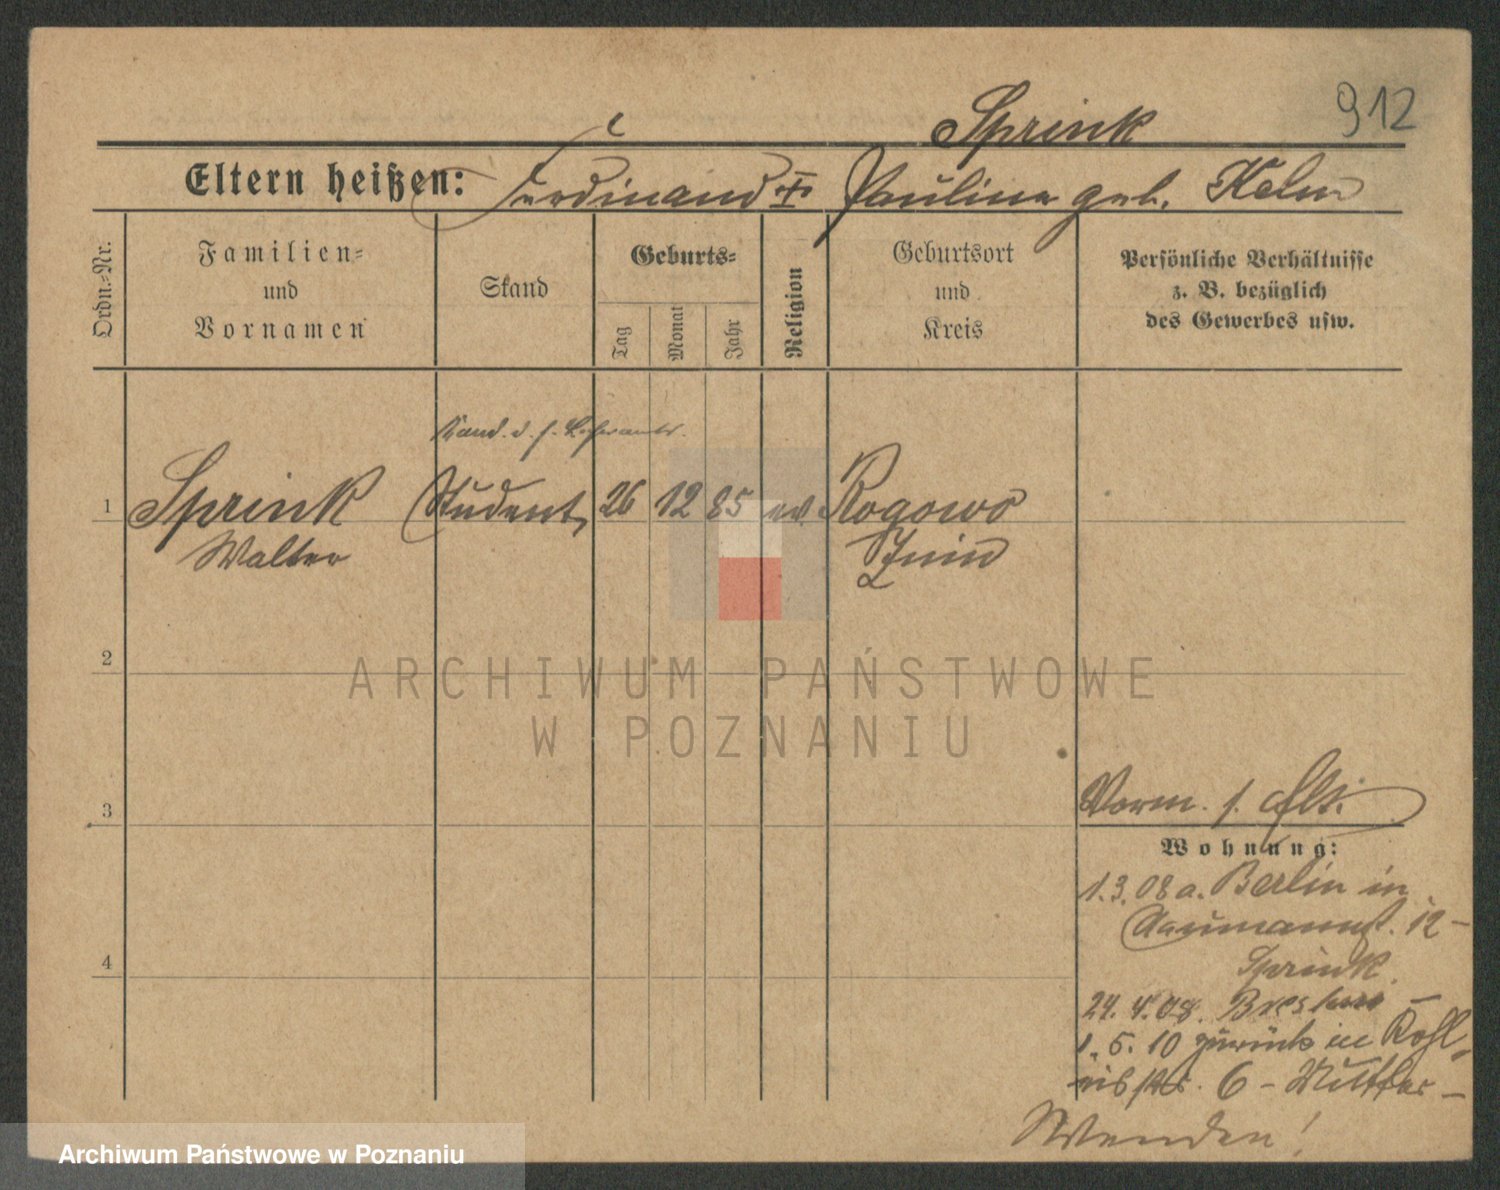 912
Sprink
Eltern heißen: Ferdinand † Pauline geb. Kelm
Ordn.-Nr.
Familien-
und
Vornamen
Stand
Geburts-
Tag
Monat
Jahr
Religion
Geburtsort
und
Kreis
Persönliche Verhältnisse
z. B. bezüglich
des Gewerbes usw.
Kand. d. h. Lehramts.
1 Sprink Student, 26 12 85 ev. Rogowo
Walter Znin
2
ARCHIWUM PAŃSTWOWE
W POZNANIU
3
Vorm. s.
Wohnung:
1.3.08 a. Berlin in
Naumannst. 12 -
Sprink
24. 4. 08. Breslau -
1. 5. 10 zurück in Kohl-
4
6 - Mutter -
Wenden!
Archiwum Państwowe w Poznaniu